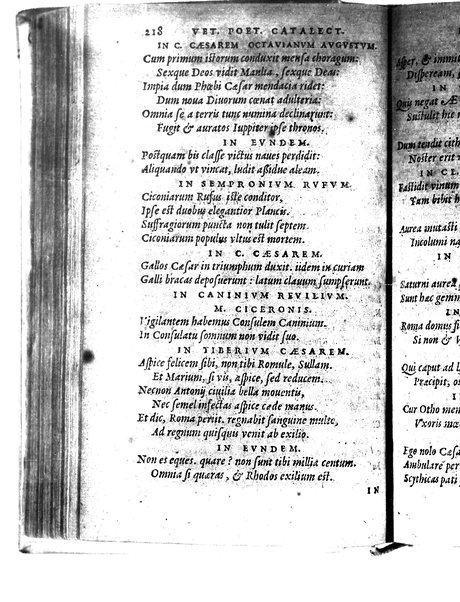 218 VET. POET. CATALECT.
IN C. CÆSAREM OCTAVIANUM AVGVSTVM.
Cum primum istorum conduxit mensa choragum:
Sexque Deos vidit Manlia, sexque Deas:
Impia dum Phœbi Cæsar mendacia ridet:
Dum noua Diuorum cœnat adulteria:
Omnia se a terris tunc numina declinarunt:
Fugit & auratos Iuppiter ipse thronos.
IN EVNDEM.
Postquam bis classe victus naues perdidit:
Aliquando vt vincat, ludit assidue aleam.
IN SEMPRONIVM RVFVM.
Ciconiarum Rufus iste conditor,
Ipse est duobus elegantior Plancis.
Suffragiorum puncta non tulit septem.
Ciconiarum populus vltus est mortem.
IN C. CÆSAREM.
Gallos Cæsar in triumphum duxit. iidem in curiam
Galli bracas deposuerunt: latum clauum sumpserunt.
IN CANINIVM REVILIVM.
M. CICERONIS.
Vigilantem habemus Consulem Caninium.
In Consulatu somnum non vidit suo.
IN TIBERIVM CÆSAREM.
Aspice felicem sibi, non tibi Romule, Sullam.
Et Marium, si vis, aspice, sed reducem.
Necnon Antonij ciuilia bella mouentis,
Nec semel infectas aspice cæde manus.
Et dic, Roma perit. regnabit sanguine multo,
Ad regnum quisquis venit ab exilio.
IN EVNDEM.
Non es eques. quare? non sunt tibi millia centum.
Omnia si quæras, & Rhodos exilium est.
IN
Asper, & immit
Dispeream,
IN
Quis negat Æ
Sustulit hic
Dum tendit cith
Noster erit
IN CL.
Fastidit vinum
Tam bibit h
Aurea mutasti
Incolumi
IN
Saturni aurea
Sunt hæc gemm
IN
Roma domus fi
Si non & V
Qui caput ad l
Præcipit, os
IN
Cur Otho men
Vxoris mœ
Ego nolo Cæsa
Ambulare per
Scythicas pati